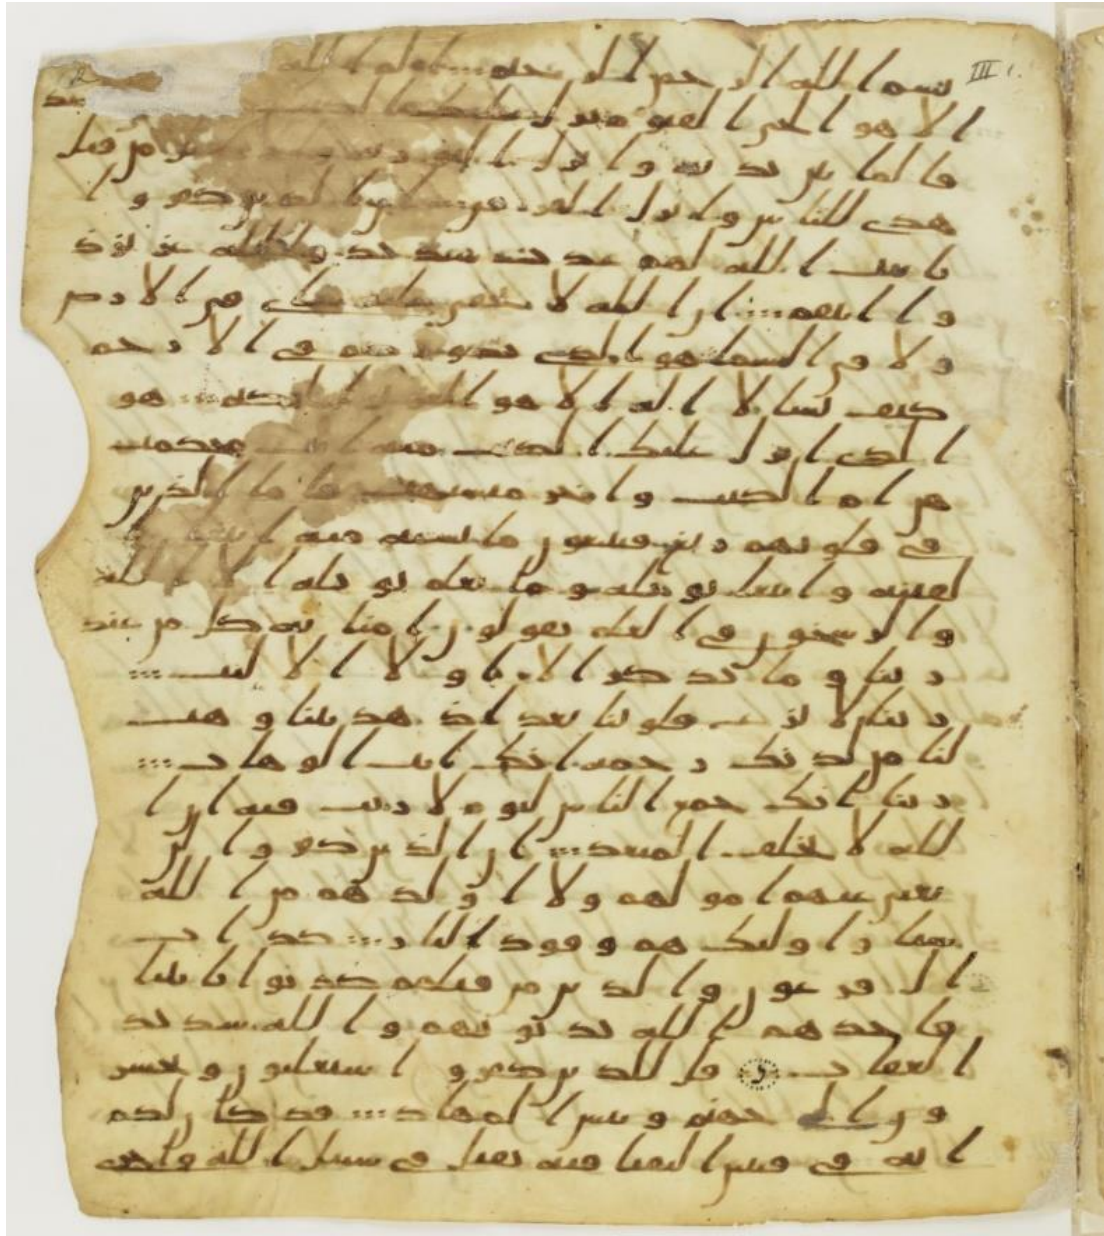 III
بسم الله الرحمن الرحيم ∴ الم الله
الا هو الحي القيوم نزل عليك الكتب بالحق مصد
قا لما بين يديه وانزل التورية والانجيل من قبل
هدى للناس وانزل الفرقن ان الذين كفروا
بايت الله لهم عذب شديد والله عزيز ذ
و انتقم ∴ ان الله لا يخفى عليه شي في الارض
ولا في السما هو الذي يصوركم في الارحم
كيف يشا لا اله الا هو العزيز الحكيم ∴ هو
الذي انزل عليك الكتب منه ايت محكمت
هن ام الكتب واخر متشبهت فاما الذين
في قلوبهم زيغ فيتبعون ما تشبه منه ابتغا
الفتنه وابتغا تويله وما يعلم تويله الا الله
والرسخون في العلم يقولون امنا به كل من عند
ربنا وما يذكر الا اولا الالبب ∴
ربنا لا تزغ قلوبنا بعد اذ هديتنا وهب
لنا من لدنك رحمه انك انت الوهاب ∴
ربنا انك جمع الناس ليوم لا ريب فيه ان ا
لله لا يخلف الميعد ∴ ان الذين كفروا لن
تغني عنهم امولهم ولا اولدهم من الله
شيا واوليك هم وقود النار ∴ كداب
ال فرعون والذين من قبلهم كذبوا بايتنا
فاخذهم الله بذنوبهم والله شديد
العقاب قل للذين كفروا ستغلبون وتحشر
ون الى جهنم وبيس المهاد ∴ قد كان لكم
ايه في فيتين التقتا فيه تقتل في سبيل الله واخرى